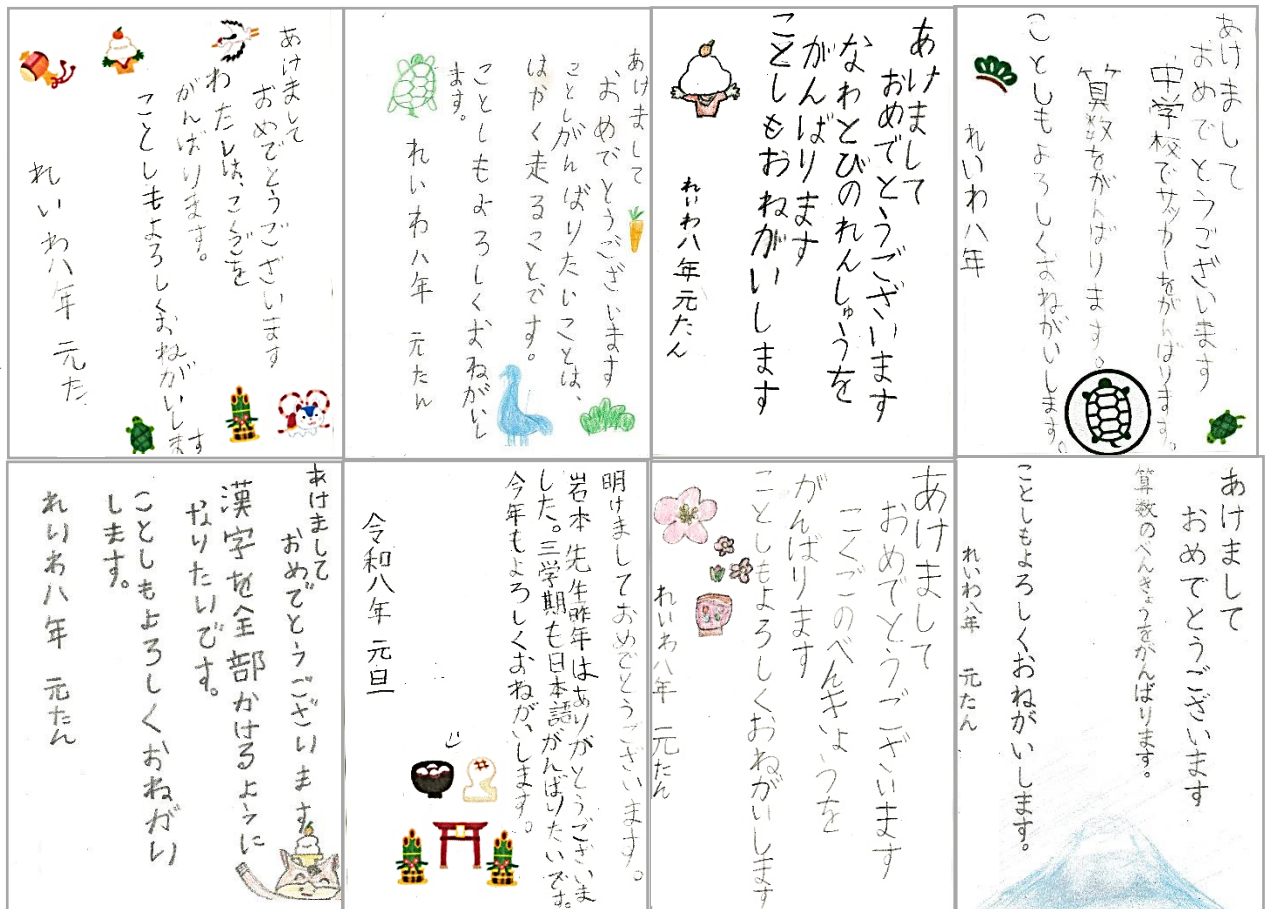 あけまして
おめでとうございます
わたしは、こくごを
がんばります。
ことしもよろしくおねがいします
れいわ八年 元た
あけまして
おめでとうございます
ことしがんばりたいことは、
はやく走ることです。
ことしもよろしくおねがいし
ます。
れいわ八年 元たん
あけまして
おめでとうございます
なわとびのれんしゅうを
がんばります
ことしもおねがいします
れいわ八年元たん
あけまして
おめでとうございます
中学校でサッカーをがんばります。
算数をがんばります。
ことしもよろしくおねがいします。
れいわ八年
あけまして
おめでとうございます
漢字を全部かけるように
なりたいです。
ことしもよろしくおねがい
します。
れいわ八年 元たん
明けましておめでとうございます。
岩本先生昨年はありがとうございま
した。三学期も日本語がんばりたいです。
今年もよろしくおねがいします。
令和八年 元旦
あけまして
おめでとうございます
こくごのべんきょうを
がんばります
ことしもよろしくおねがいします
れいわ八年 元たん
あけまして
おめでとうございます
算数のべんきょうをがんばります。
ことしもよろしくおねがいします。
れいわ八年 元たん